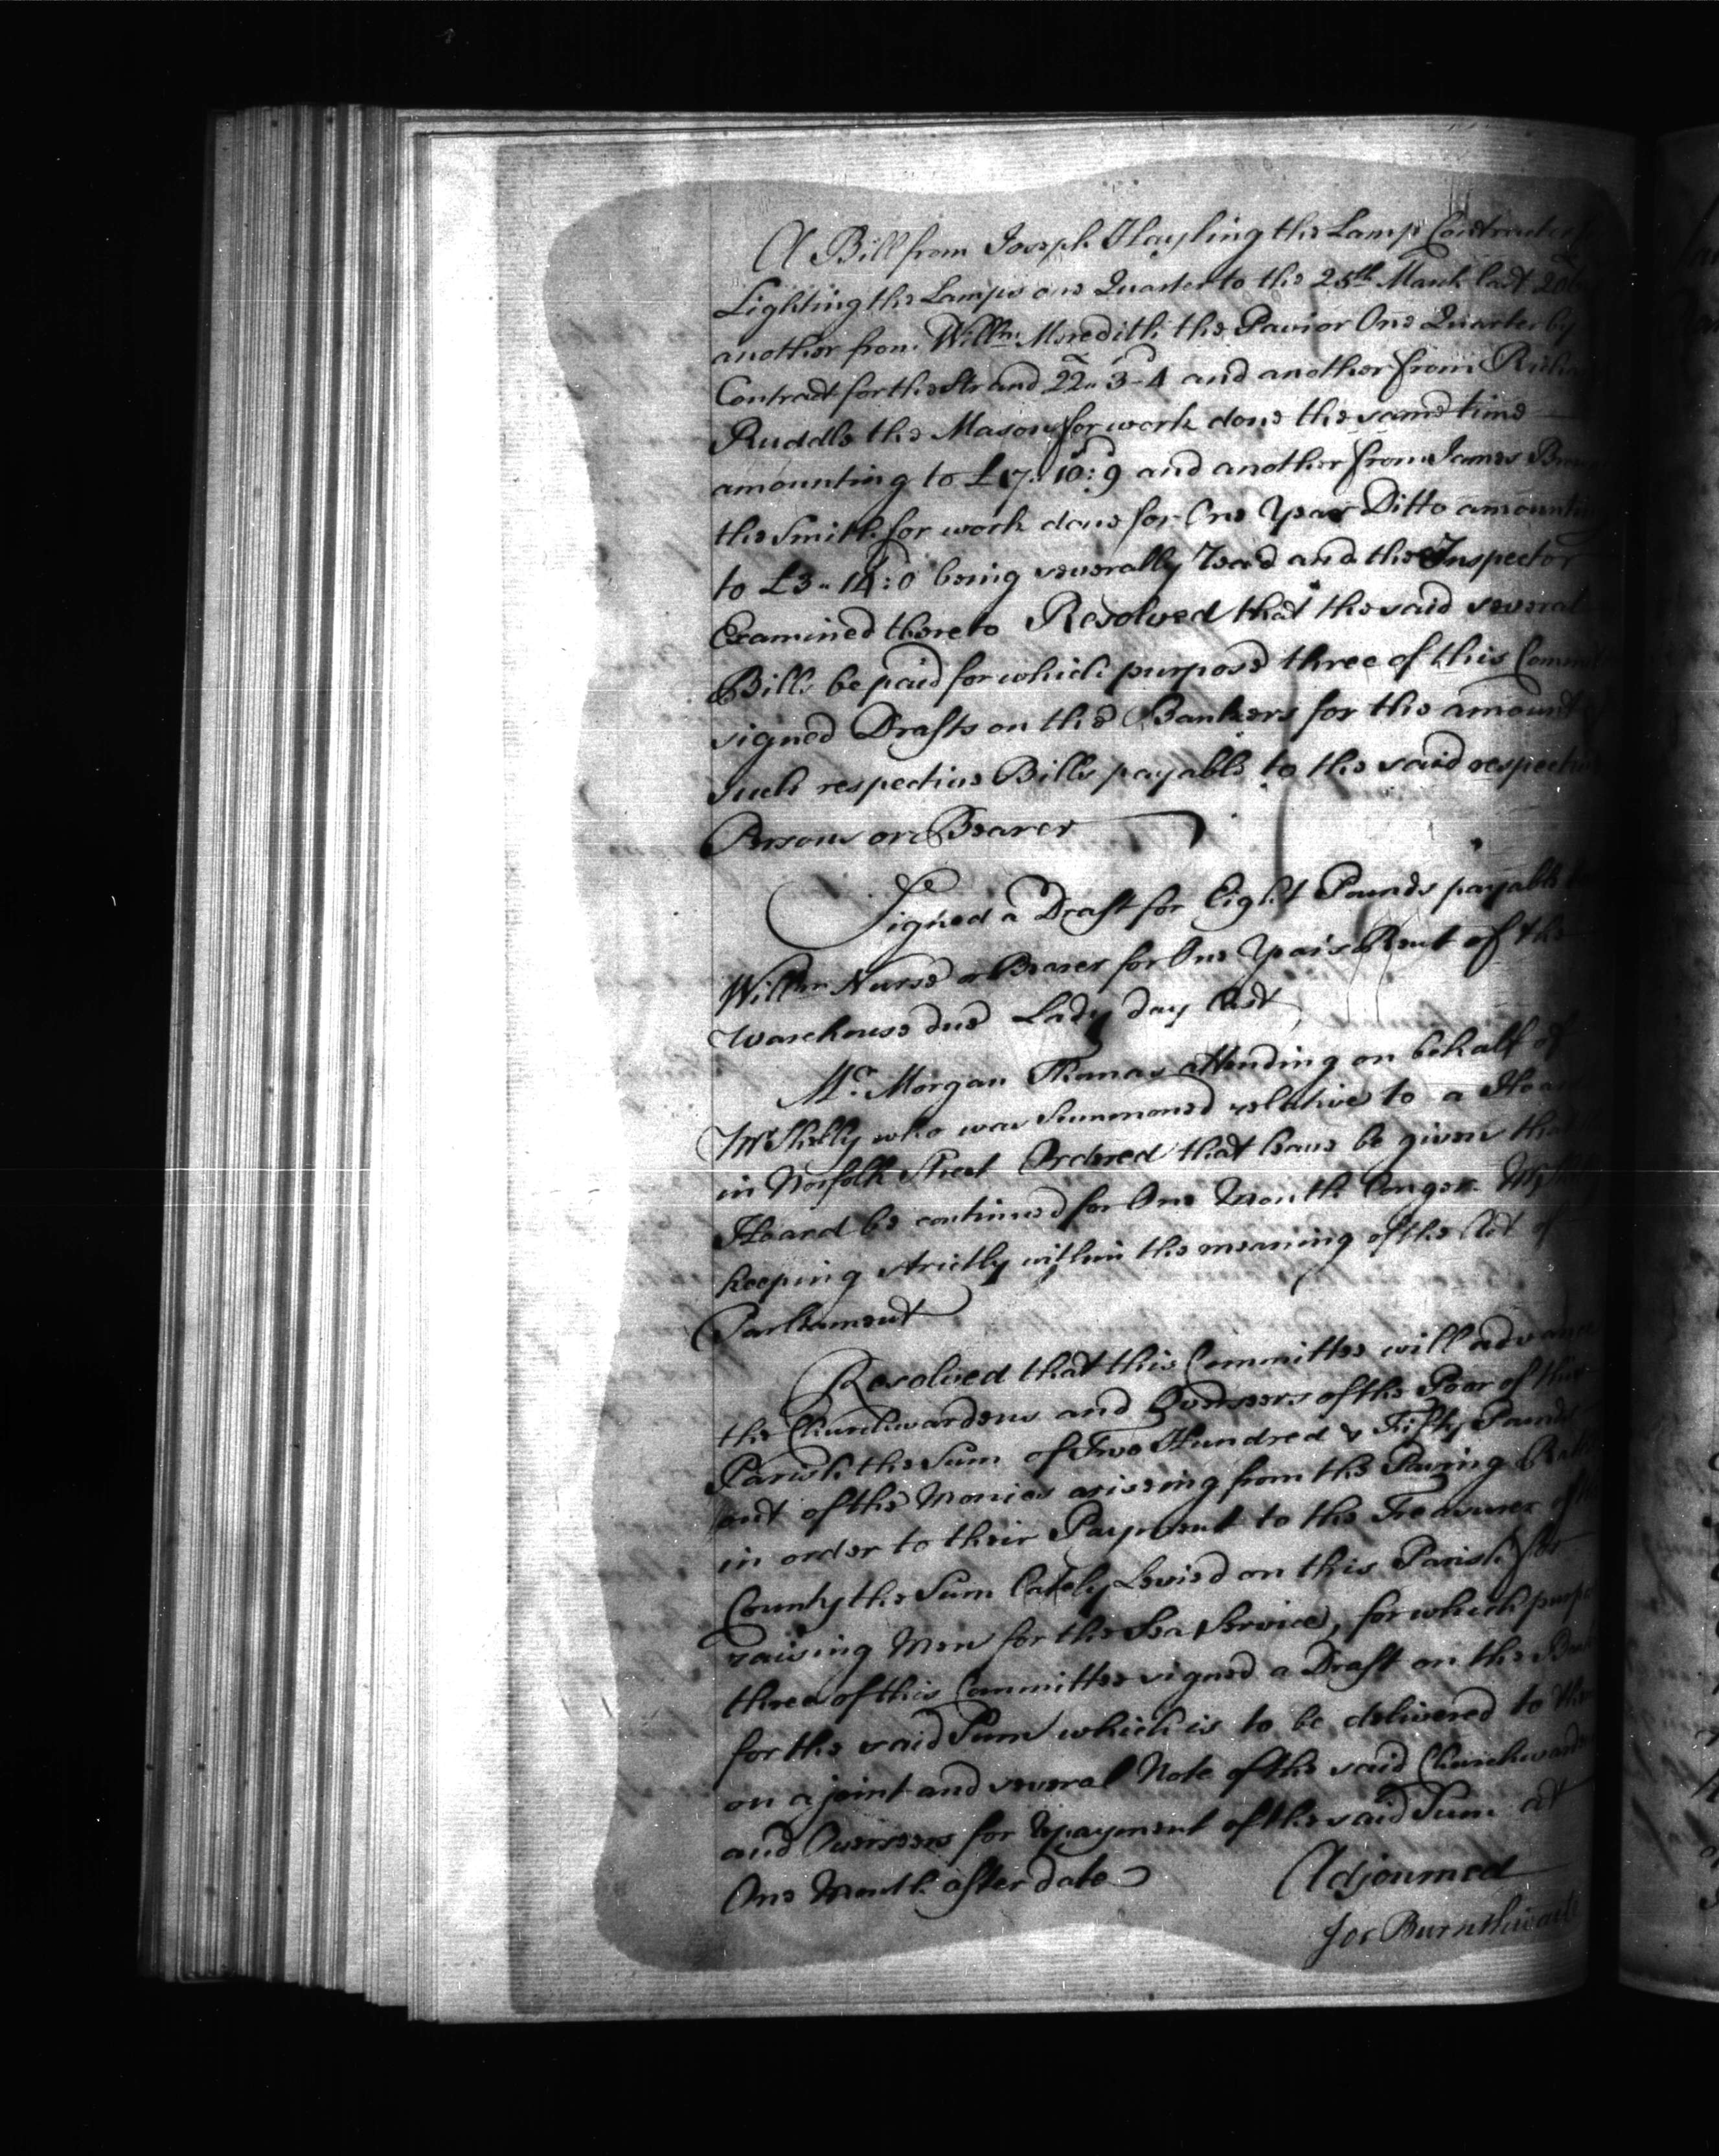 A Bill from Joseph Hayling the Lamp Contractor
Lighting the Lamps one Quarter to the 25th March last
another from Willm. Meredith the Pavior One Quarter by
Contract for the Strand 22.. 3 - 4 and another from
Ruddle the Mason for work done the same time
amounting to £17.. 10 : 9 and another from James
the Smith for work done for One Year Ditto
to £3.. 14 : 0 being severally read and the Inspector
Examined thereto Resolved that the said several
Bills be paid for which purpose three of this
signed Drafts on the Bankers for the amount
such respective Bills payable to the said
Persons or Bearer
Signed a Draft for Eight Pounds payable
Willm Nurse or Bearer for One Years Rent of the
Warehouse due Lady day last
Mr. Morgan Thomas Attending on behalf of
Mr Skelly who was Summoned relative to a Hoard
in Norfolk Street Ordered that leave be given that
Hoard be continued for One Month longer
keeping strictly within the meaning of the Act of
Parliament
Resolved that this Committee will advance
the Churchwardens and Overseers of the Poor of this
Parish the Sum of Two Hundred & Fifty Pounds
out of the Monies ariseing from the Paving
in order to their Payment to the Treasurer of
County the Sum lately Levied on this Parish for
raising Men for the Sea Service, for which
three of this Committee signed a Draft on the
for the said Sum which is to be delivered to
on a joint and several Note of the said
and Overseers for repayment of the said Sum at
One Month after date Adjourned
Jos Burnthwaite